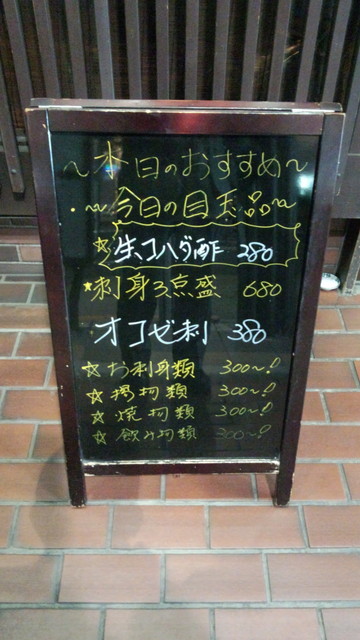 ～本日のおすすめ～
・～今日の目玉品～
☆生コハダ酢 280
★刺身3点盛 680
オコゼ刺 380
☆お刺身類 300～!
☆揚物類 300～!
☆焼物類 300～!
☆飲み物類 300～!